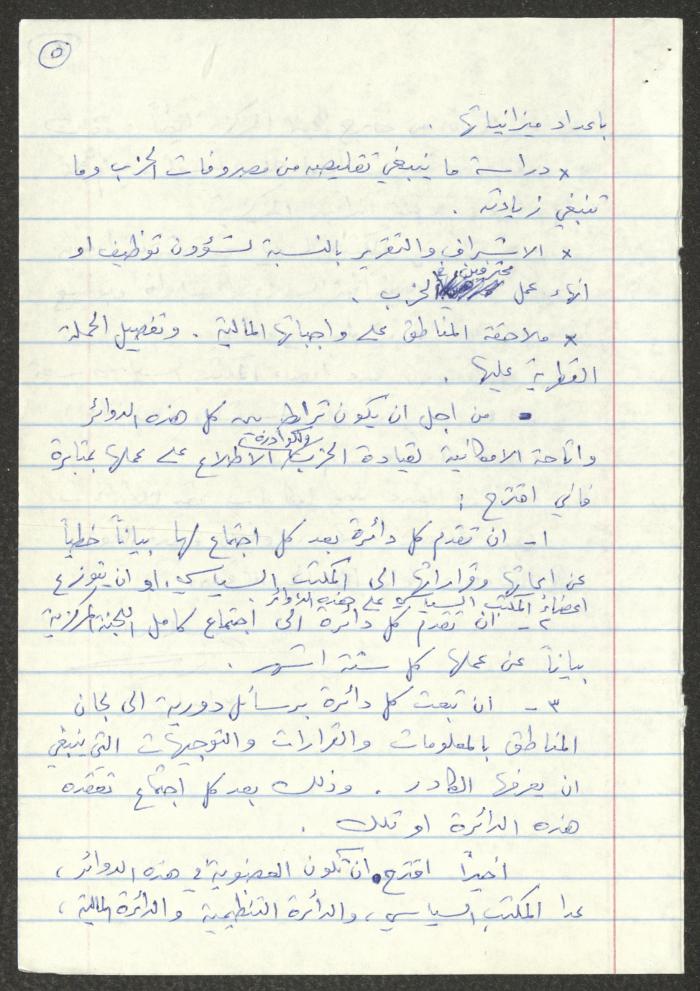 ٥
باعداد ميزانياتها .
× دراسة ما ينبغي تقليصه من مصروفات الحزب وما
تنبغي زيادته .
× الاشراف والتقرير بالنسبة لشؤون توظيف او
محترفين في
انهاء عمل الحزب .
× ملاحقة المناطق على واجباتها المالية . وتفصيل الحملة
القطرية عليها .
- من اجل ان يكون ترابط بين كل هذه الدوائر
ولكوادره
واتاحة الامكانية لقيادة الحزب الاطلاع على عملها بمثابرة
فاني اقترح :
١- ان تقدم كل دائرة بعد كل اجتماع لها بياناً خطياً
عن ابحاثها وقراراتها الى المكتب السياسي، او ان يتوزع
اعضاء المكتب السياسي على هذه الدوائر .
٢- ان تقدم كل دائرة الى اجتماع كامل اللجنة المركزية
بياناً عن عملها كل ستة اشهر .
٣- ان تبعث كل دائرة برسائل دورية الى لجان
المناطق بالمعلومات والقرارات والتوجيهات التي ينبغي
ان يعرفها الكادر . وذلك بعد كل اجتماع تعقده
هذه الدائرة او تلك .
اخيراً اقترح ان تكون العضوية في هذه الدوائر ،
عدا المكتب السياسي ، والدائرة التنظيمية والدائرة المالية ،